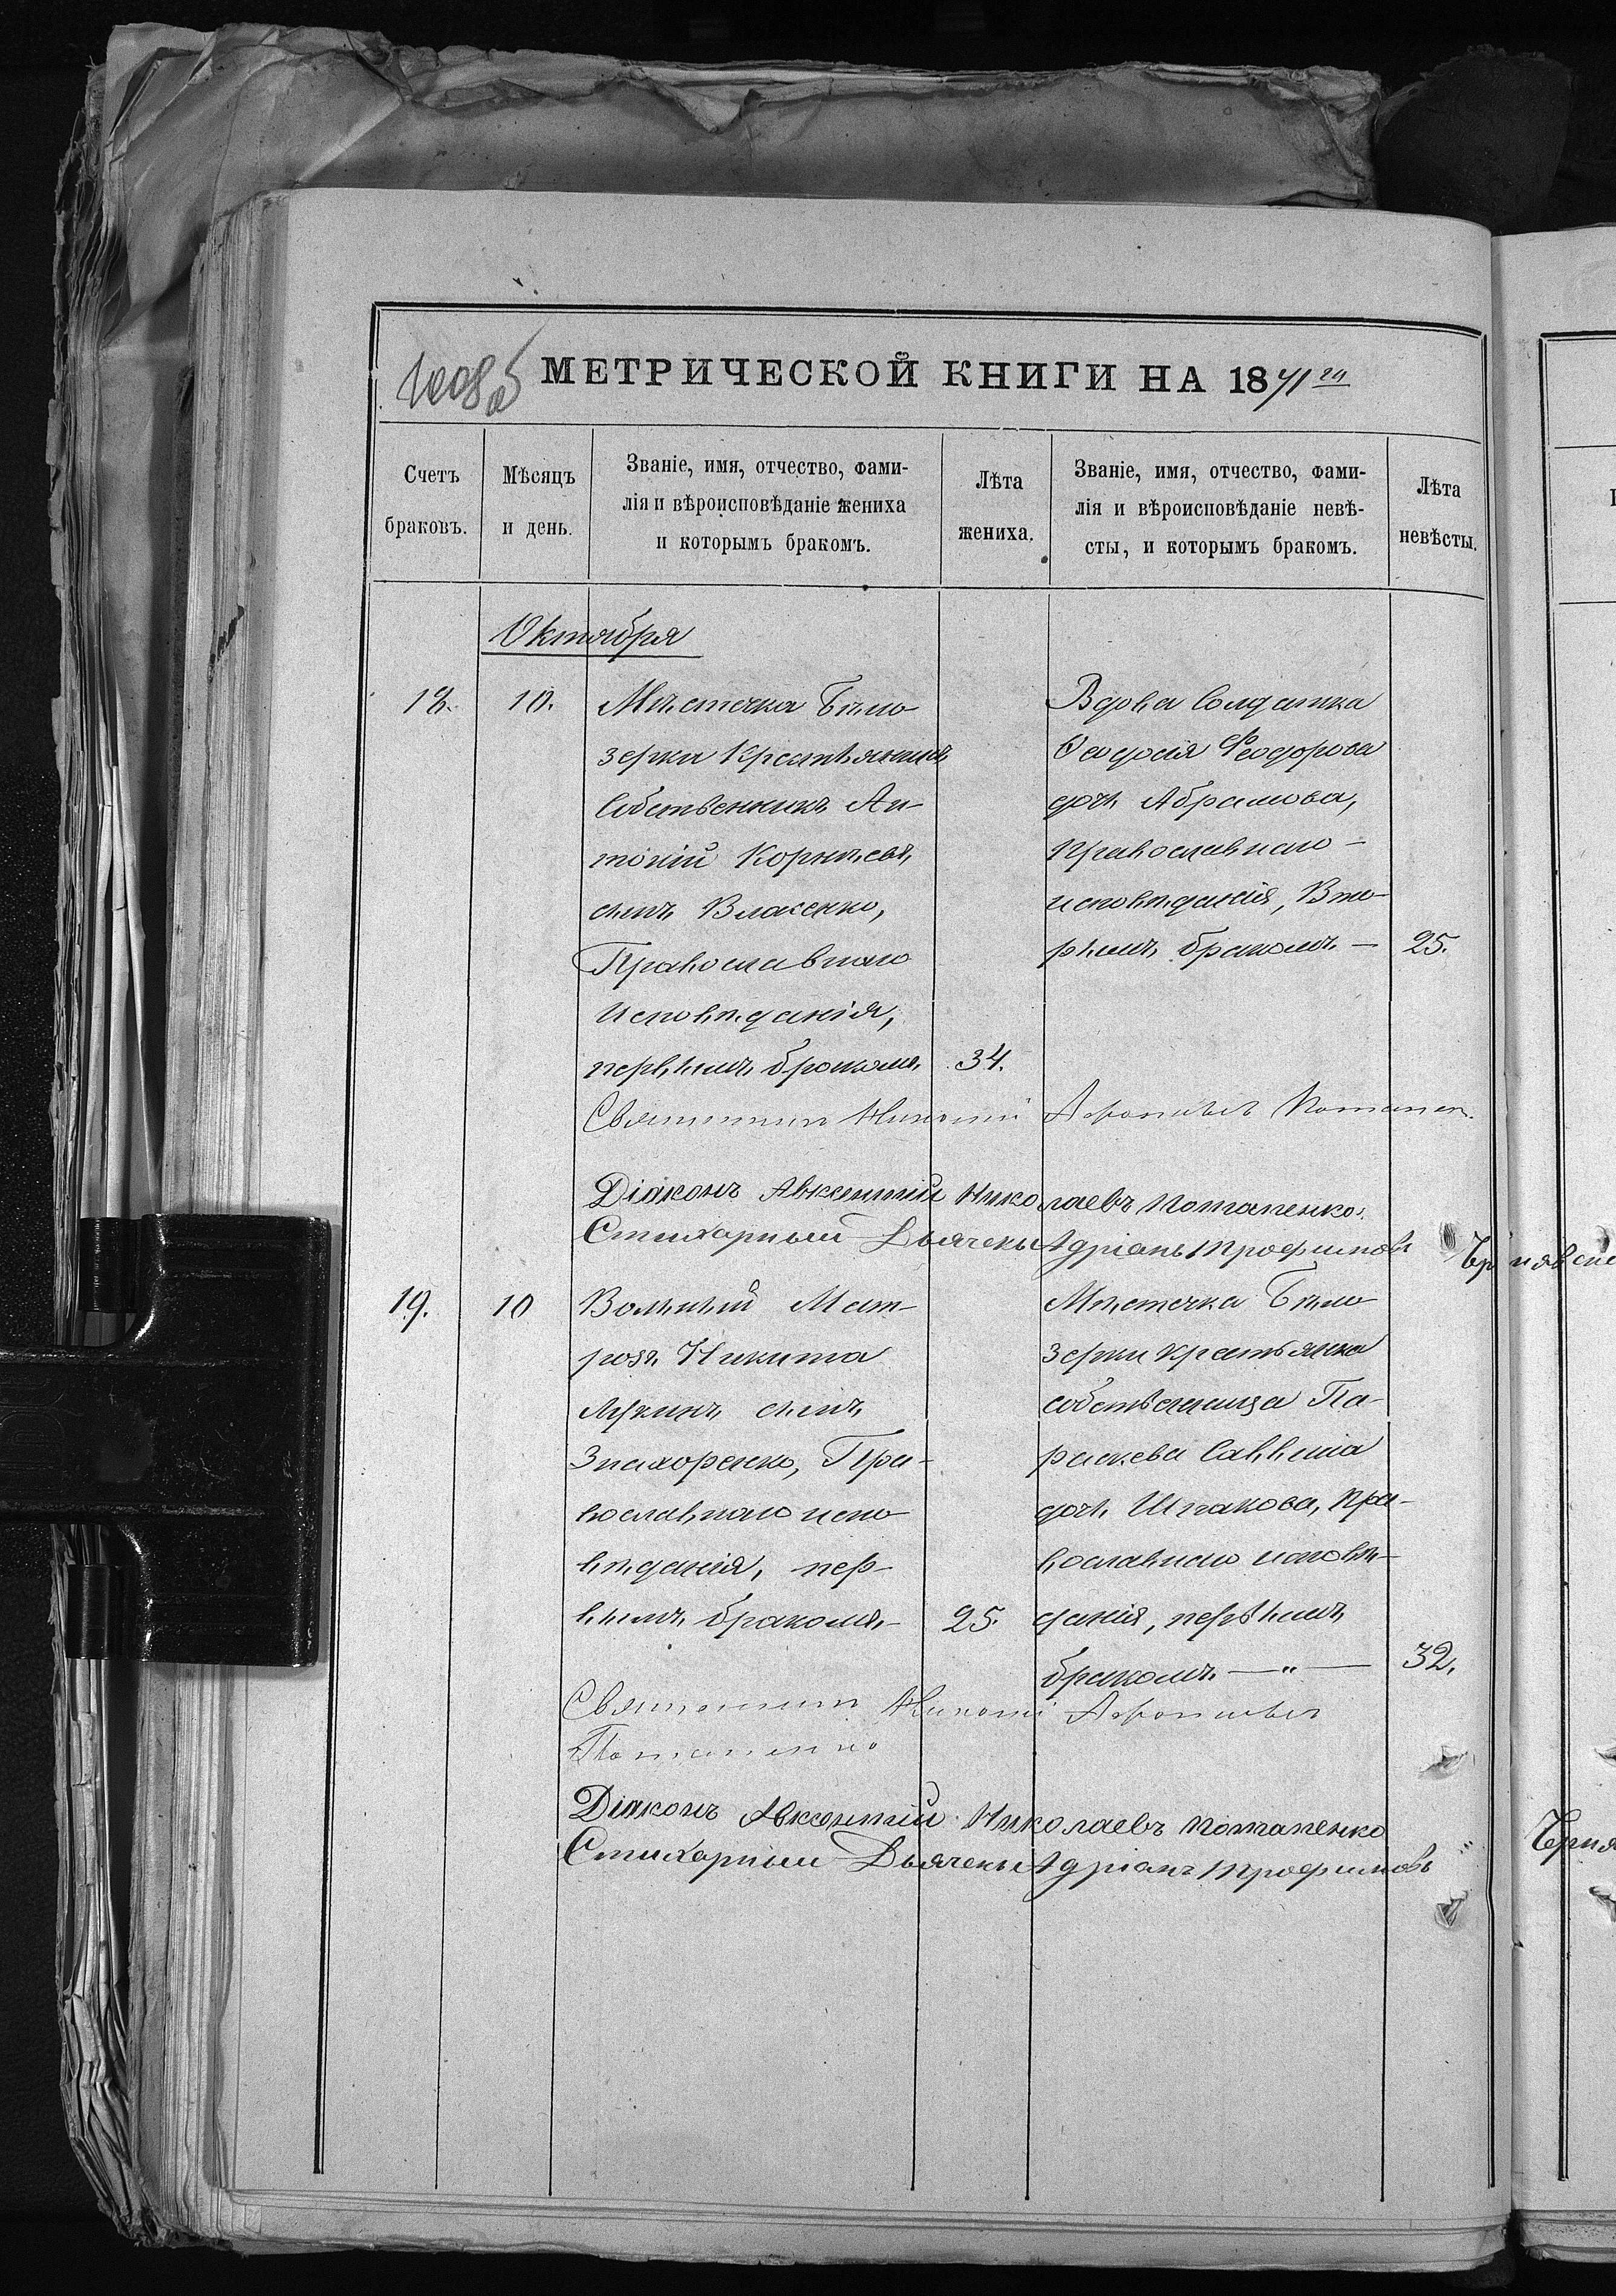 МЕТРИЧЕСКОЙ КНИГИ НА 1871 го
Счетъ браковъ.
Мѣсяцъ и день.
Званіе, имя, отчество, фами-
лія и вѣроисповѣданіе жениха
и которымъ бракомъ.
Лѣта жениха.
Званіе, имя, отчество, фами-
лія и вѣроисповѣданіе невѣ-
сты, и которымъ бракомъ.
Лѣта невѣсты.
Октября
18. 10.
Мѣстечка Бѣло
зерки Крестьянинъ
Собственникъ Ан-
тоній Корнѣевъ
сынъ Власенко,
Православнаго
Исповѣданія,
первымъ бракомъ 34.
Вдова Солдатка
Ѳеодосія Феодорова
дочь Абрамова,
Православнаго-
исповѣданія, Вто-
рымъ бракомъ — 25.
Священникъ Никола́й Афоніевъ Потапен.
Діаконъ Авксентий Николаевъ Потапенко.
Стихарный Дьячекъ Адріанъ Трофимовъ
19. 10
Вольный Мат-
розъ Никита
Лукинъ сынъ
Знахоренко, Пра-
вославнаго испо
вѣданія, пер-
вымъ бракомъ- 25.
Мѣстечка Бѣло
зерки крестьянка
собственница Па-
раскева Саввина
дочь Шпакова, Пра-
вославнаго исповѣ-
данія, первымъ
бракомъ. —"— 32.
Священникъ Афоніевъ
Потапенко
Діаконъ Авксентий Николаевъ Потапенко
Стихарный Дьячекъ Адріанъ Трофимовъ